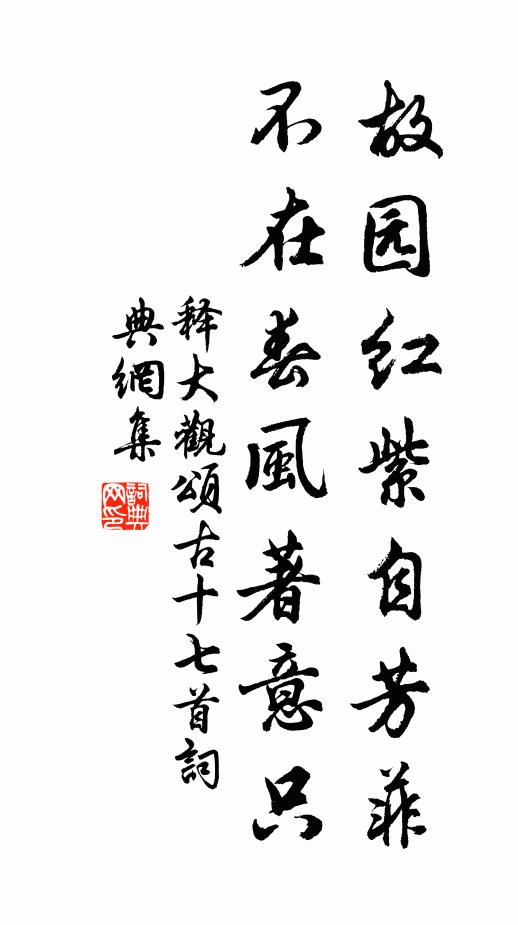 故园红紫自芳菲
不在春風著意只
释大觀頌古十七首詞
典網集
詞典网印